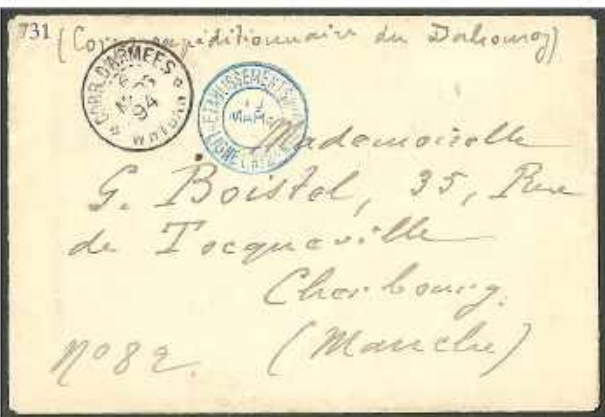 731
(Corps expéditionnaire du Dahomey)
CORR. D'ARMEES
94
ETABLISSEMENTS
MARS
LIGNE
Mademoiselle
G. Boistel, 35, Rue
de Tocqueville
Cherbourg.
(Manche)
No 82.